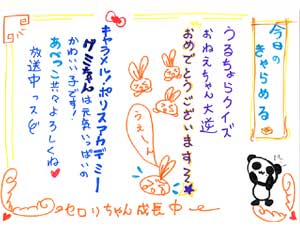 今日の
きゃらめる
うるちょらクイズ
おねえちゃん大逆
おめでとうございますぅ★
うぇ〜ト
キャラメル!ポリスアカデミー
グミちゃんは元気いっぱいの
かわいい子です!
あべっこ共々よろしくね♥
放送中っス
セロリちゃん成長中